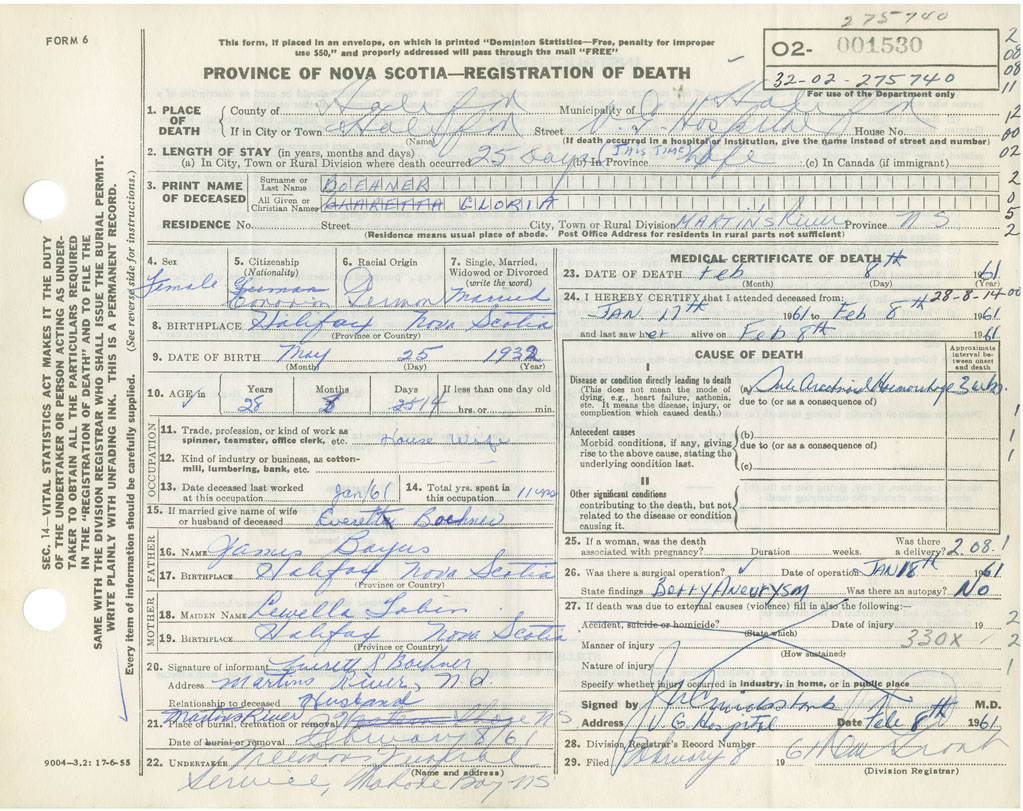 275740
FORM 6
This form, if placed in an envelope, on which is printed "Dominion Statistics—Free, penalty for improper
use $50," and properly addressed will pass through the mail "FREE"
O2- 001530
32-02-275740
For use of the Department only
PROVINCE OF NOVA SCOTIA—REGISTRATION OF DEATH
1. PLACE OF DEATH
County of Halifax Municipality of Halifax
If in City or Town Halifax Street V. G. Hospital House No.
(Name) (If death occurred in a hospital or institution, give the name instead of street and number)
2. LENGTH OF STAY (in years, months and days)
(a) In City, Town or Rural Division where death occurred 25 days (THIS TIME) (b) In Province Life (c) In Canada (if immigrant)
3. PRINT NAME OF DECEASED
Surname or Last Name BOEHNER
All Given or Christian Names GLORIA
RESIDENCE No. Street City, Town or Rural Division MARTIN'S River Province NS
(Residence means usual place of abode. Post Office Address for residents in rural parts not sufficient)
4. Sex Female
5. Citizenship (Nationality) German
6. Racial Origin German
7. Single, Married, Widowed or Divorced (write the word) Married
8. BIRTHPLACE Halifax Nova Scotia
(Province or Country)
9. DATE OF BIRTH May 25 1932
(Month) (Day) (Year)
10. AGE in Years Months Days If less than one day old
28 8 14 hrs. or min.
OCCUPATION
11. Trade, profession, or kind of work as spinner, teamster, office clerk, etc. House Wife
12. Kind of industry or business, as cotton-mill, lumbering, bank, etc.
13. Date deceased last worked at this occupation Jan/61
14. Total yrs. spent in this occupation 11 yrs
15. If married give name of wife or husband of deceased Everett Boehner
FATHER
16. NAME James Bayus
17. BIRTHPLACE Halifax Nova Scotia
(Province or Country)
MOTHER
18. MAIDEN NAME Lewella Tobin
19. BIRTHPLACE Halifax Nova Scotia
(Province or Country)
20. Signature of informant Everett R Boehner
Address Martins River, N.S.
Relationship to deceased Husband
21. Place of burial, cremation or removal Martins River NS
Date of burial or removal February 8/61
22. UNDERTAKER Funeral
(Name and address)
Service, Mahone Bay NS
9004—3.2: 17-6-55
MEDICAL CERTIFICATE OF DEATH
23. DATE OF DEATH Feb 8th 1961
(Month) (Day) (Year)
28-8-14-00
24. I HEREBY CERTIFY that I attended deceased from:
JAN. 17th 1961 to Feb 8th 1961
and last saw her alive on Feb 8th 1961
CAUSE OF DEATH
Approximate interval between onset and death
I
Disease or condition directly leading to death
(This does not mean the mode of dying, e.g., heart failure, asthenia, etc. It means the disease, injury, or complication which caused death.)
(a) Sub Arachnoid Haemorrhage 3 wks.
due to (or as a consequence of)
Antecedent causes
Morbid conditions, if any, giving rise to the above cause, stating the underlying condition last.
(b)
due to (or as a consequence of)
(c)
II
Other significant conditions
contributing to the death, but not related to the disease or condition causing it.
25. If a woman, was the death associated with pregnancy? Duration weeks. Was there a delivery? 2.08.1
26. Was there a surgical operation? ✓ Date of operation JAN 18th 1961
State findings Berry Aneurysm Was there an autopsy? No
27. If death was due to external causes (violence) fill in also the following:—
Accident, suicide or homicide? Date of injury 19
(State which)
Manner of injury 330X
(How sustained)
Nature of injury
Specify whether injury occurred in industry, in home, or in public place
Signed by M.D.
Address V. G. Hospital Date Feb 8th 1961.
28. Division Registrar's Record Number
29. Filed February 8 19 61
(Division Registrar)
SEC. 14—VITAL STATISTICS ACT MAKES IT THE DUTY
OF THE UNDERTAKER OR PERSON ACTING AS UNDER-
TAKER TO OBTAIN ALL THE PARTICULARS REQUIRED
IN THE "REGISTRATION OF DEATH" AND TO FILE THE
SAME WITH THE DIVISION REGISTRAR WHO SHALL ISSUE THE BURIAL PERMIT.
WRITE PLAINLY WITH UNFADING INK. THIS IS A PERMANENT RECORD.
Every item of information should be carefully supplied. (See reverse side for instructions.)